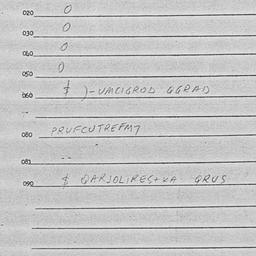 020 0
030 0
060 0
050 0
060 $ )-UMCIGROD GGRAD
--
080 PRUFCUTREFM7
081 --
090 $ QARJOLIRES+KA GRUS